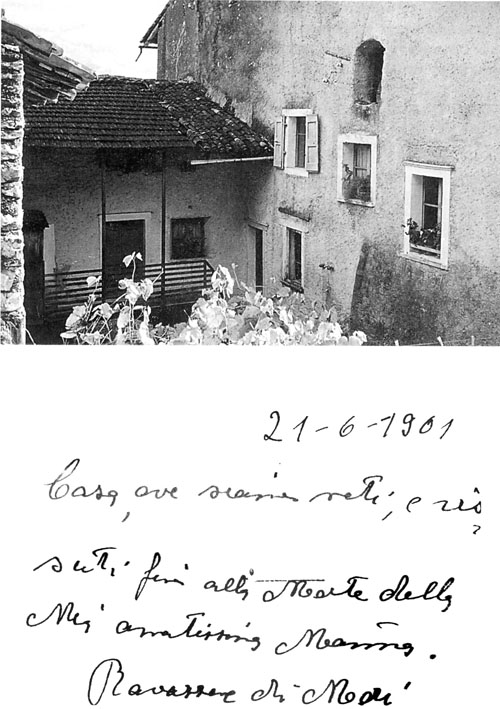 21-6-1901
Casa, ove siamo nati, e vis
suti fin alla Morte della
Mia amatissima Mamma.
Ravazzone di Mori